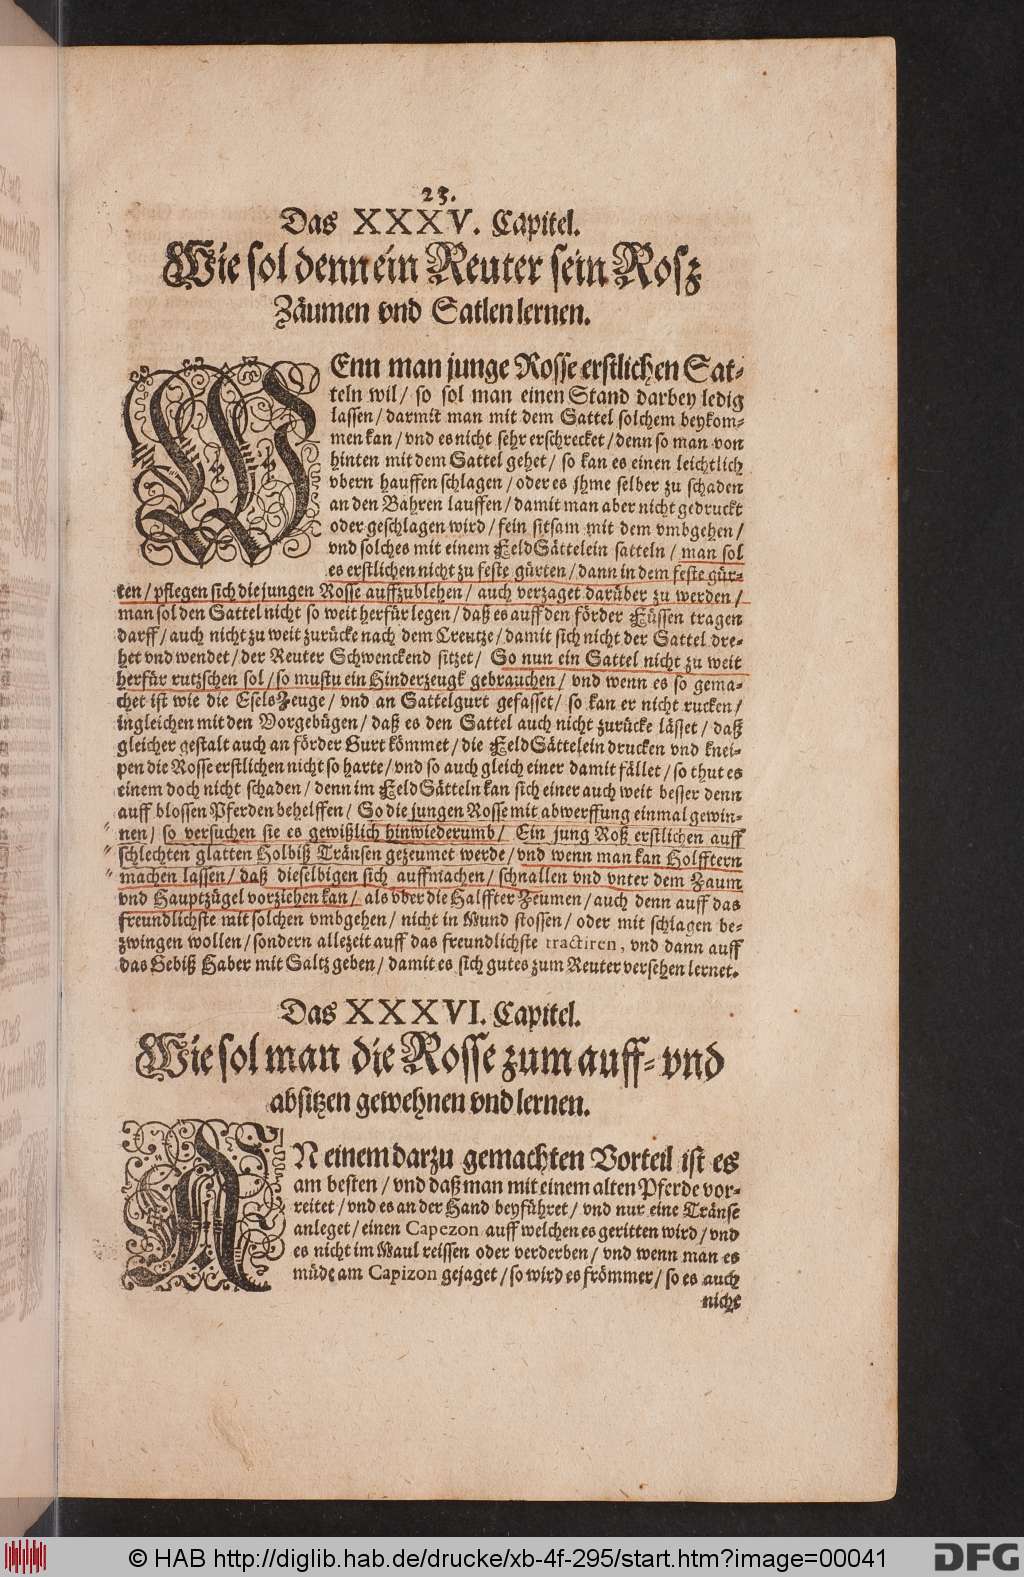 23.
Das XXXV. Capitel.
Wie sol denn ein Reuter sein Rosz
Zäumen vnd Satlen lernen.
WEnn man junge Rosse erstlichen Sat-
teln wil / so sol man einen Stand darbey ledig
lassen / darmit man mit dem Sattel solchem beykom-
men kan / vnd es nicht sehr erschrecket / denn so man von
hinten mit dem Sattel gehet / so kan es einen leichtlich
vbern hauffen schlagen / oder es jhme selber zu schaden
an den Bahren lauffen / damit man aber nicht gedruckt
oder geschlagen wird / fein sitsam mit dem vmbgehen /
vnd solches mit einem FeldSättelein satteln / man sol
es erstlichen nicht zu feste gürten / dann in dem feste gür-
ten / pflegen sich die jungen Rosse auffzublehen / auch verzaget darüber zu werden /
man sol den Sattel nicht so weit herfür legen / daß es auff den förder Füssen tragen
darff / auch nicht zu weit zurücke nach dem Creutze / damit sich nicht der Sattel dre-
het vnd wendet / der Reuter Schwenckend sitzet / So nun ein Sattel nicht zu weit
herfür rutzschen sol / so mustu ein Hinderzeugk gebrauchen / vnd wenn es so gema-
chet ist wie die EselsZeuge / vnd an Sattelgurt gefasset / so kan er nicht rucken /
ingleichen mit den Vorgebügen / daß es den Sattel auch nicht zurücke lässet / daß
gleicher gestalt auch an förder Gurt kömmet / die FeldSättelein drucken vnd knei-
pen die Rosse erstlichen nicht so harte / vnd so auch gleich einer damit fället / so thut es
einem doch nicht schaden / denn im FeldSätteln kan sich einer auch weit besser denn
auff blossen Pferden behelffen / So die jungen Rosse mit abwerffung einmal gewin-
nen / so versuchen sie es gewißlich hinwiederumb / Ein jung Roß erstlichen auff
schlechten glatten Holbiß Tränsen gezeumet werde / vnd wenn man kan Holfftern
machen lassen / daß dieselbigen sich auffmachen / schnallen vnd vnter dem Zaum
vnd Hauptzügel vorziehen kan / als vber die Halffter Zeumen / auch denn auff das
freundlichste mit solchen vmbgehen / nicht in Mund stossen / oder mit schlagen be-
zwingen wollen / sondern allezeit auff das freundlichste tractiren, vnd dann auff
das Gebiß Haber mit Saltz geben / damit es sich gutes zum Reuter versehen lernet.
Das XXXVI. Capitel.
Wie sol man die Rosse zum auff- vnd
absitzen gewehnen vnd lernen.
AN einem darzu gemachten Vorteil ist es
am besten / vnd daß man mit einem alten Pferde vor-
reitet / vnd es an der Hand beyführet / vnd nur eine Tränse
anleget / einen Capezon auff welchen es geritten wird / vnd
es nicht im Maul reissen oder verderben / vnd wenn man es
müde am Capizon gejaget / so wird es frömmer / so es auch
nicht
© HAB http://diglib.hab.de/drucke/xb-4f-295/start.htm?image=00041
DFG